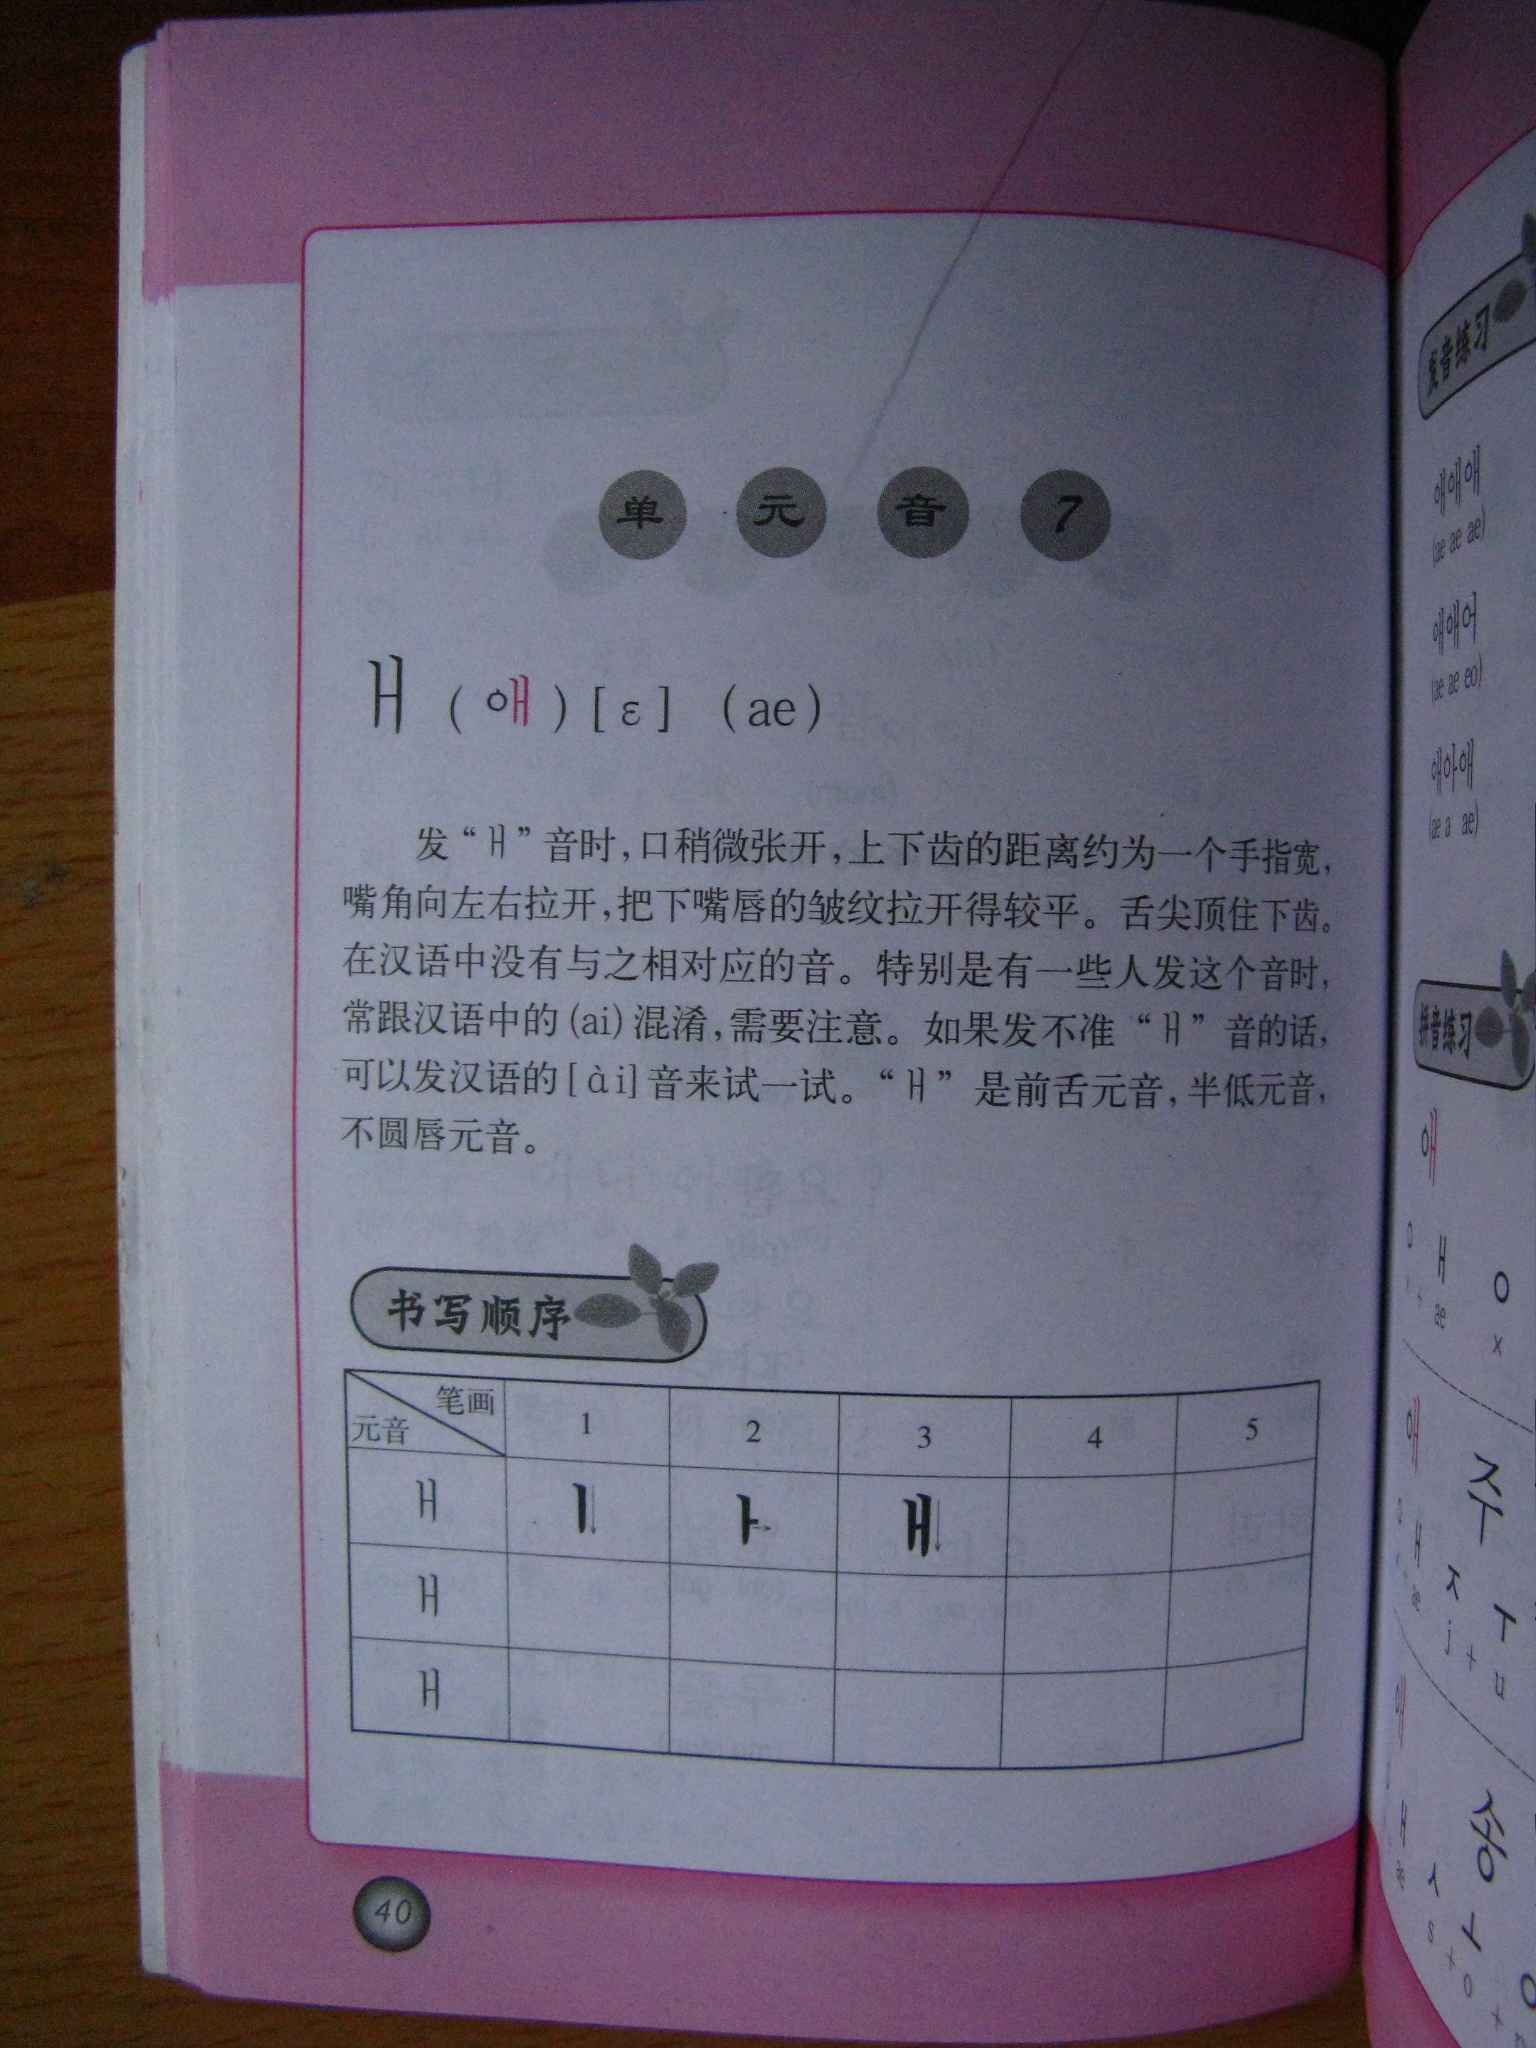 单元音7
ㅐ (애) [ε] (ae)
发“ㅐ”音时,口稍微张开,上下齿的距离约为一个手指宽,
嘴角向左右拉开,把下嘴唇的皱纹拉开得较平。舌尖顶住下齿。
在汉语中没有与之相对应的音。特别是有一些人发这个音时,
常跟汉语中的(ai)混淆,需要注意。如果发不准“ㅐ”音的话,
可以发汉语的[ài]音来试一试。“ㅐ”是前舌元音,半低元音,
不圆唇元音。
书写顺序
笔画
元音 1 2 3 4 5
ㅐ ㅣ ㅏ ㅐ
ㅐ
ㅐ
40
发音练习
애애애
(ae ae ae)
애애어
(ae ae eo)
애아애
(ae a ae)
拼音练习
애
ㅇ ㅐ ㅇ
x + ae x
애 주
ㅇ ㅐ ㅈ ㅜ
ae j + u
애 송
ㅐ ㅅ ㅗ ㅇ
ae s + o +